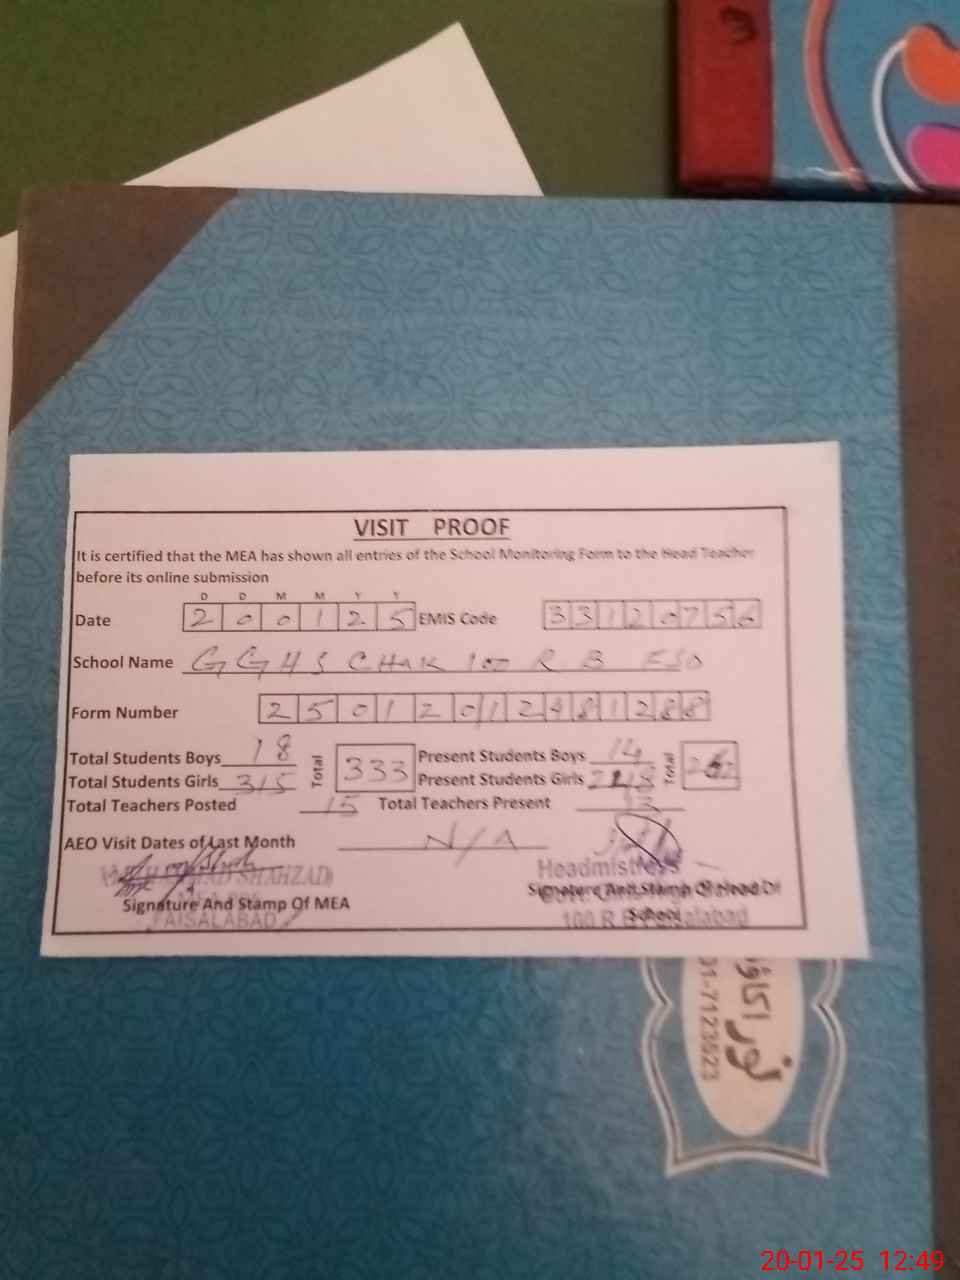 3
VISIT PROOF
It is certified that the MEA has shown all entries of the School Monitoring Form to the Head Teacher
before its online submission
D D M M Y Y
Date 2 0 0 1 2 5 EMIS Code 3 3 1 2 0 7 5 6
School Name GGHS CHAK 100 R B FSD
Form Number 2 5 0 1 2 0 1 2 4 8 1 2 8 8
Total Students Boys 18 Total 333 Present Students Boys 14 Total
Total Students Girls 315 Present Students Girls
Total Teachers Posted 15 Total Teachers Present 13
AEO Visit Dates of Last Month N/A
SHAHZAD Headmistress
Signature And Stamp Of MEA Signature And Stamp Of Head Of
School
FAISALABAD 100 R.B Faisalabad
31-7123523
20-01-25 12:49